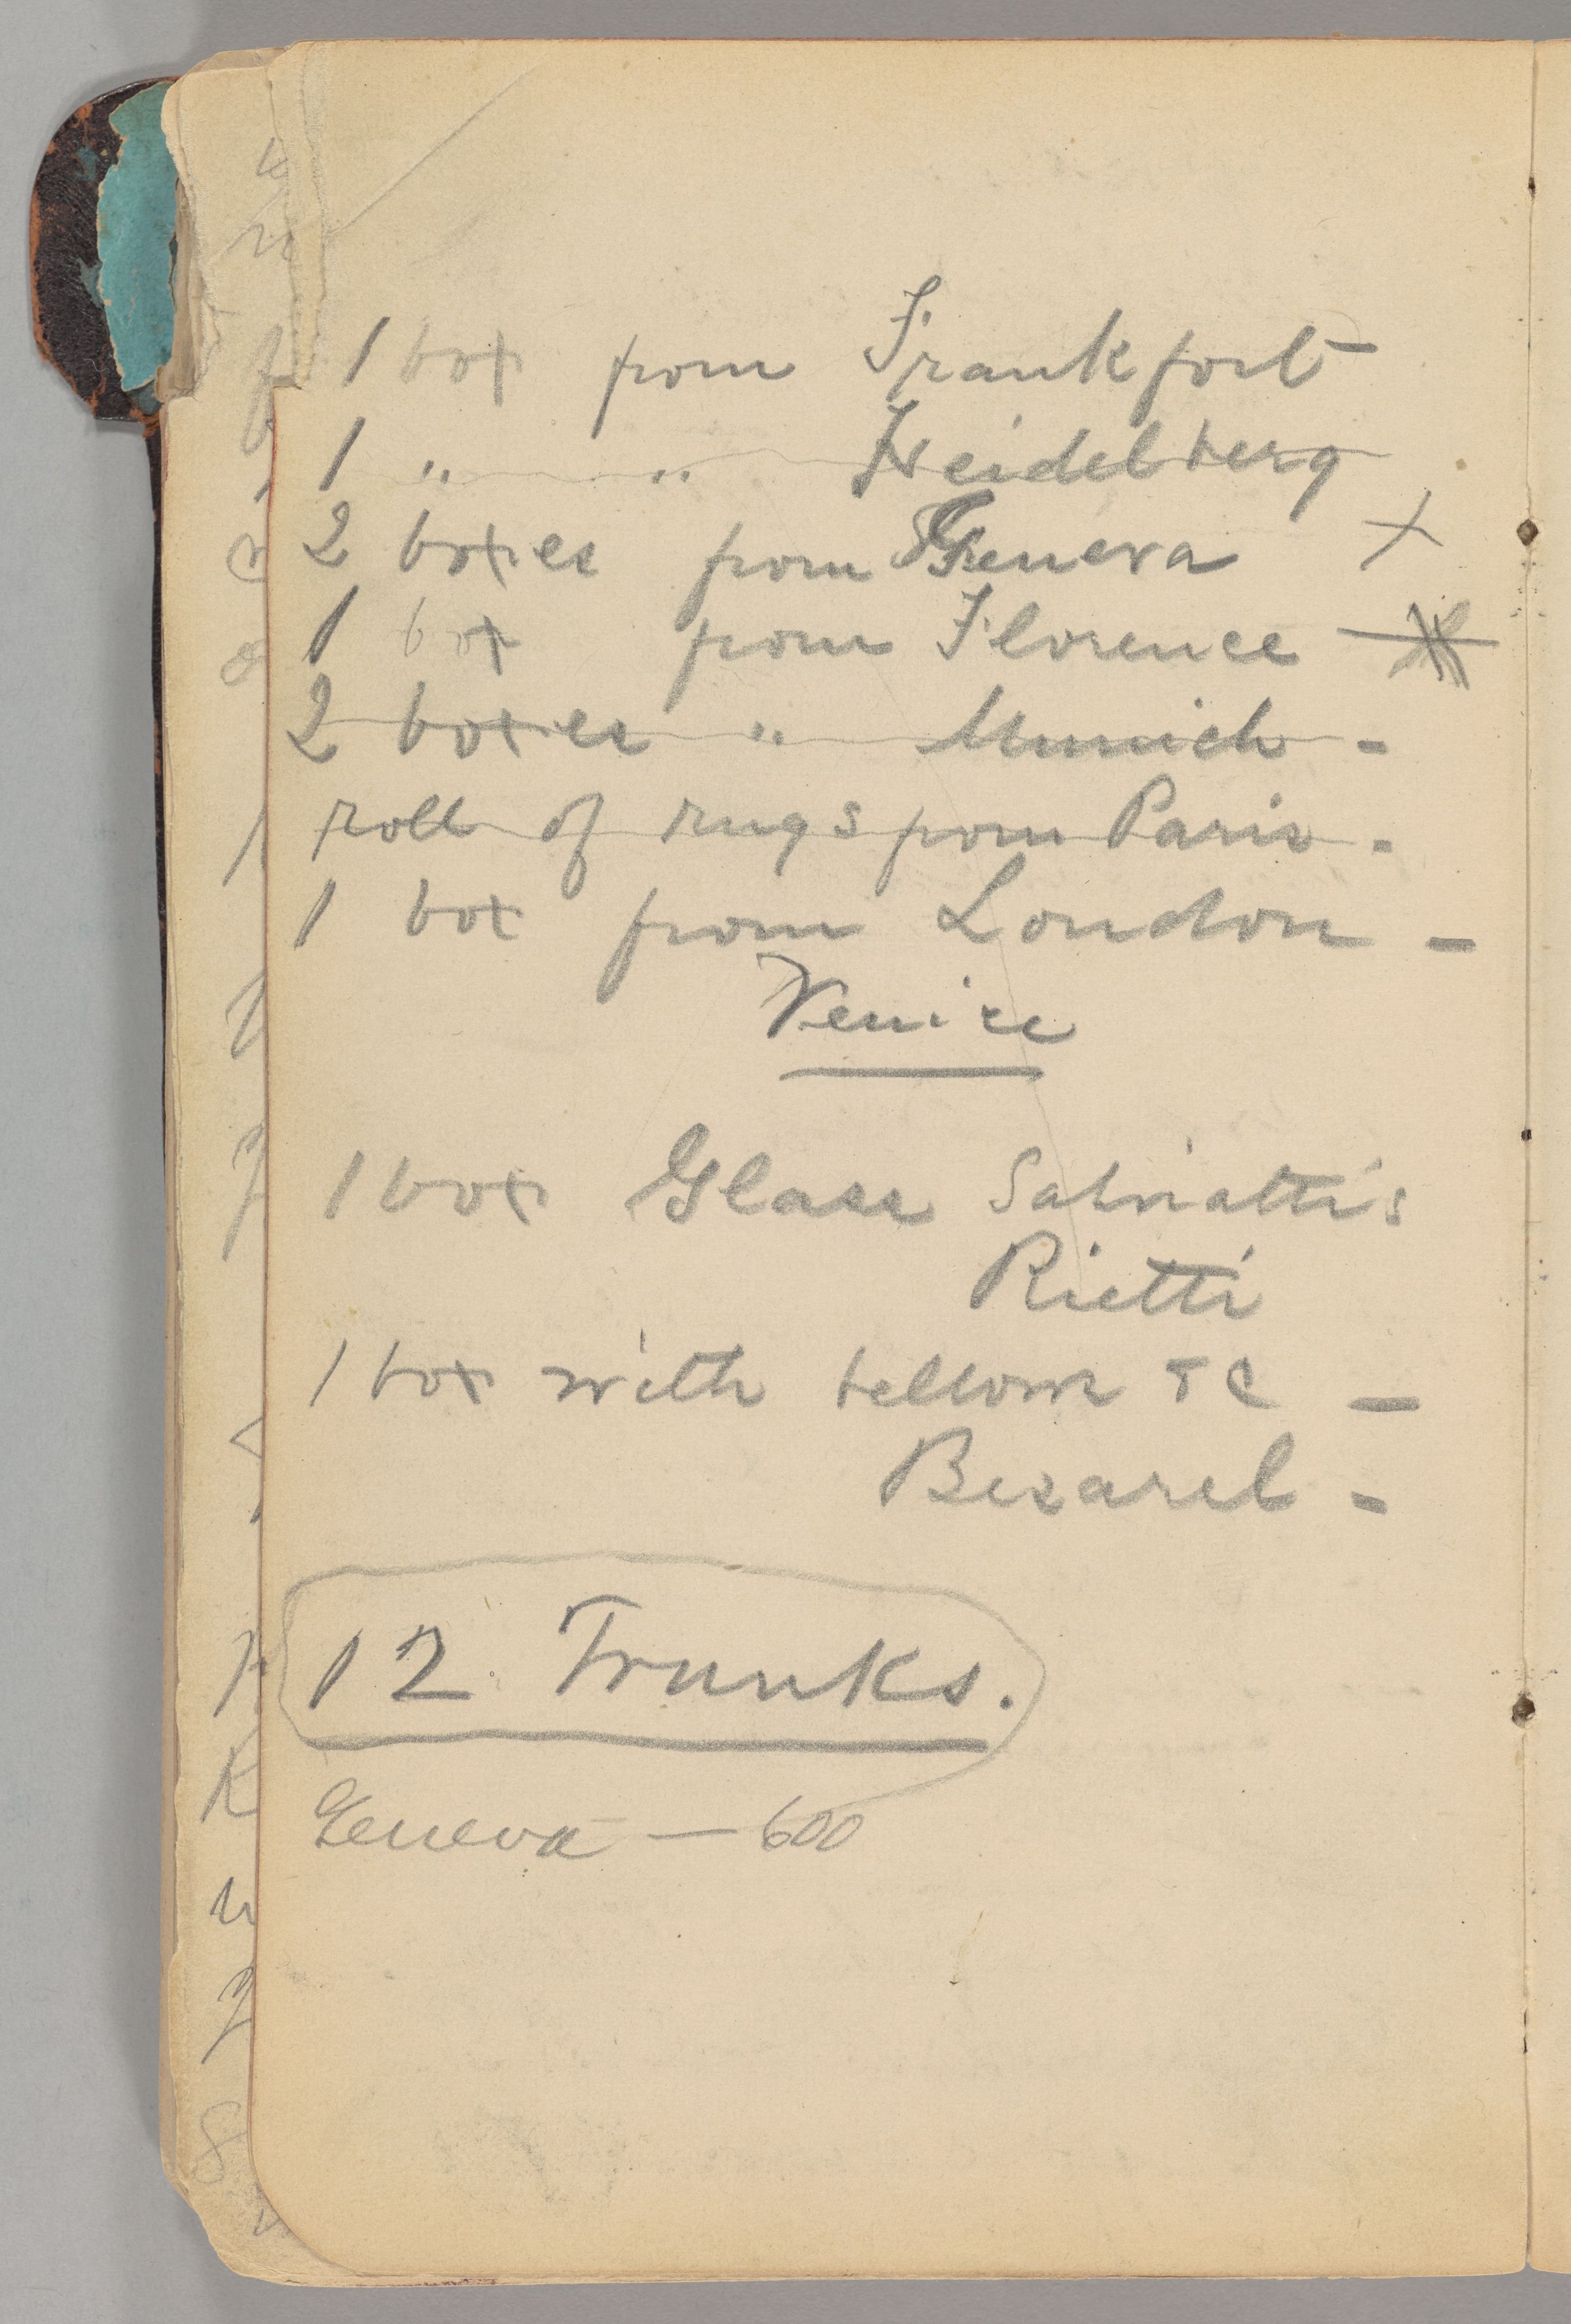 1 box from Frankfort -
1 " " Heidelberg
2 boxes from Geneva X
1 box from Florence
2 boxes " Munich -
roll of rugs from Paris -
1 box from London -
Venice
1 box Glass Salviatti's
Rietti
1 box with bellows &c -
Besarel -
12 Trunks.
Geneva — 600